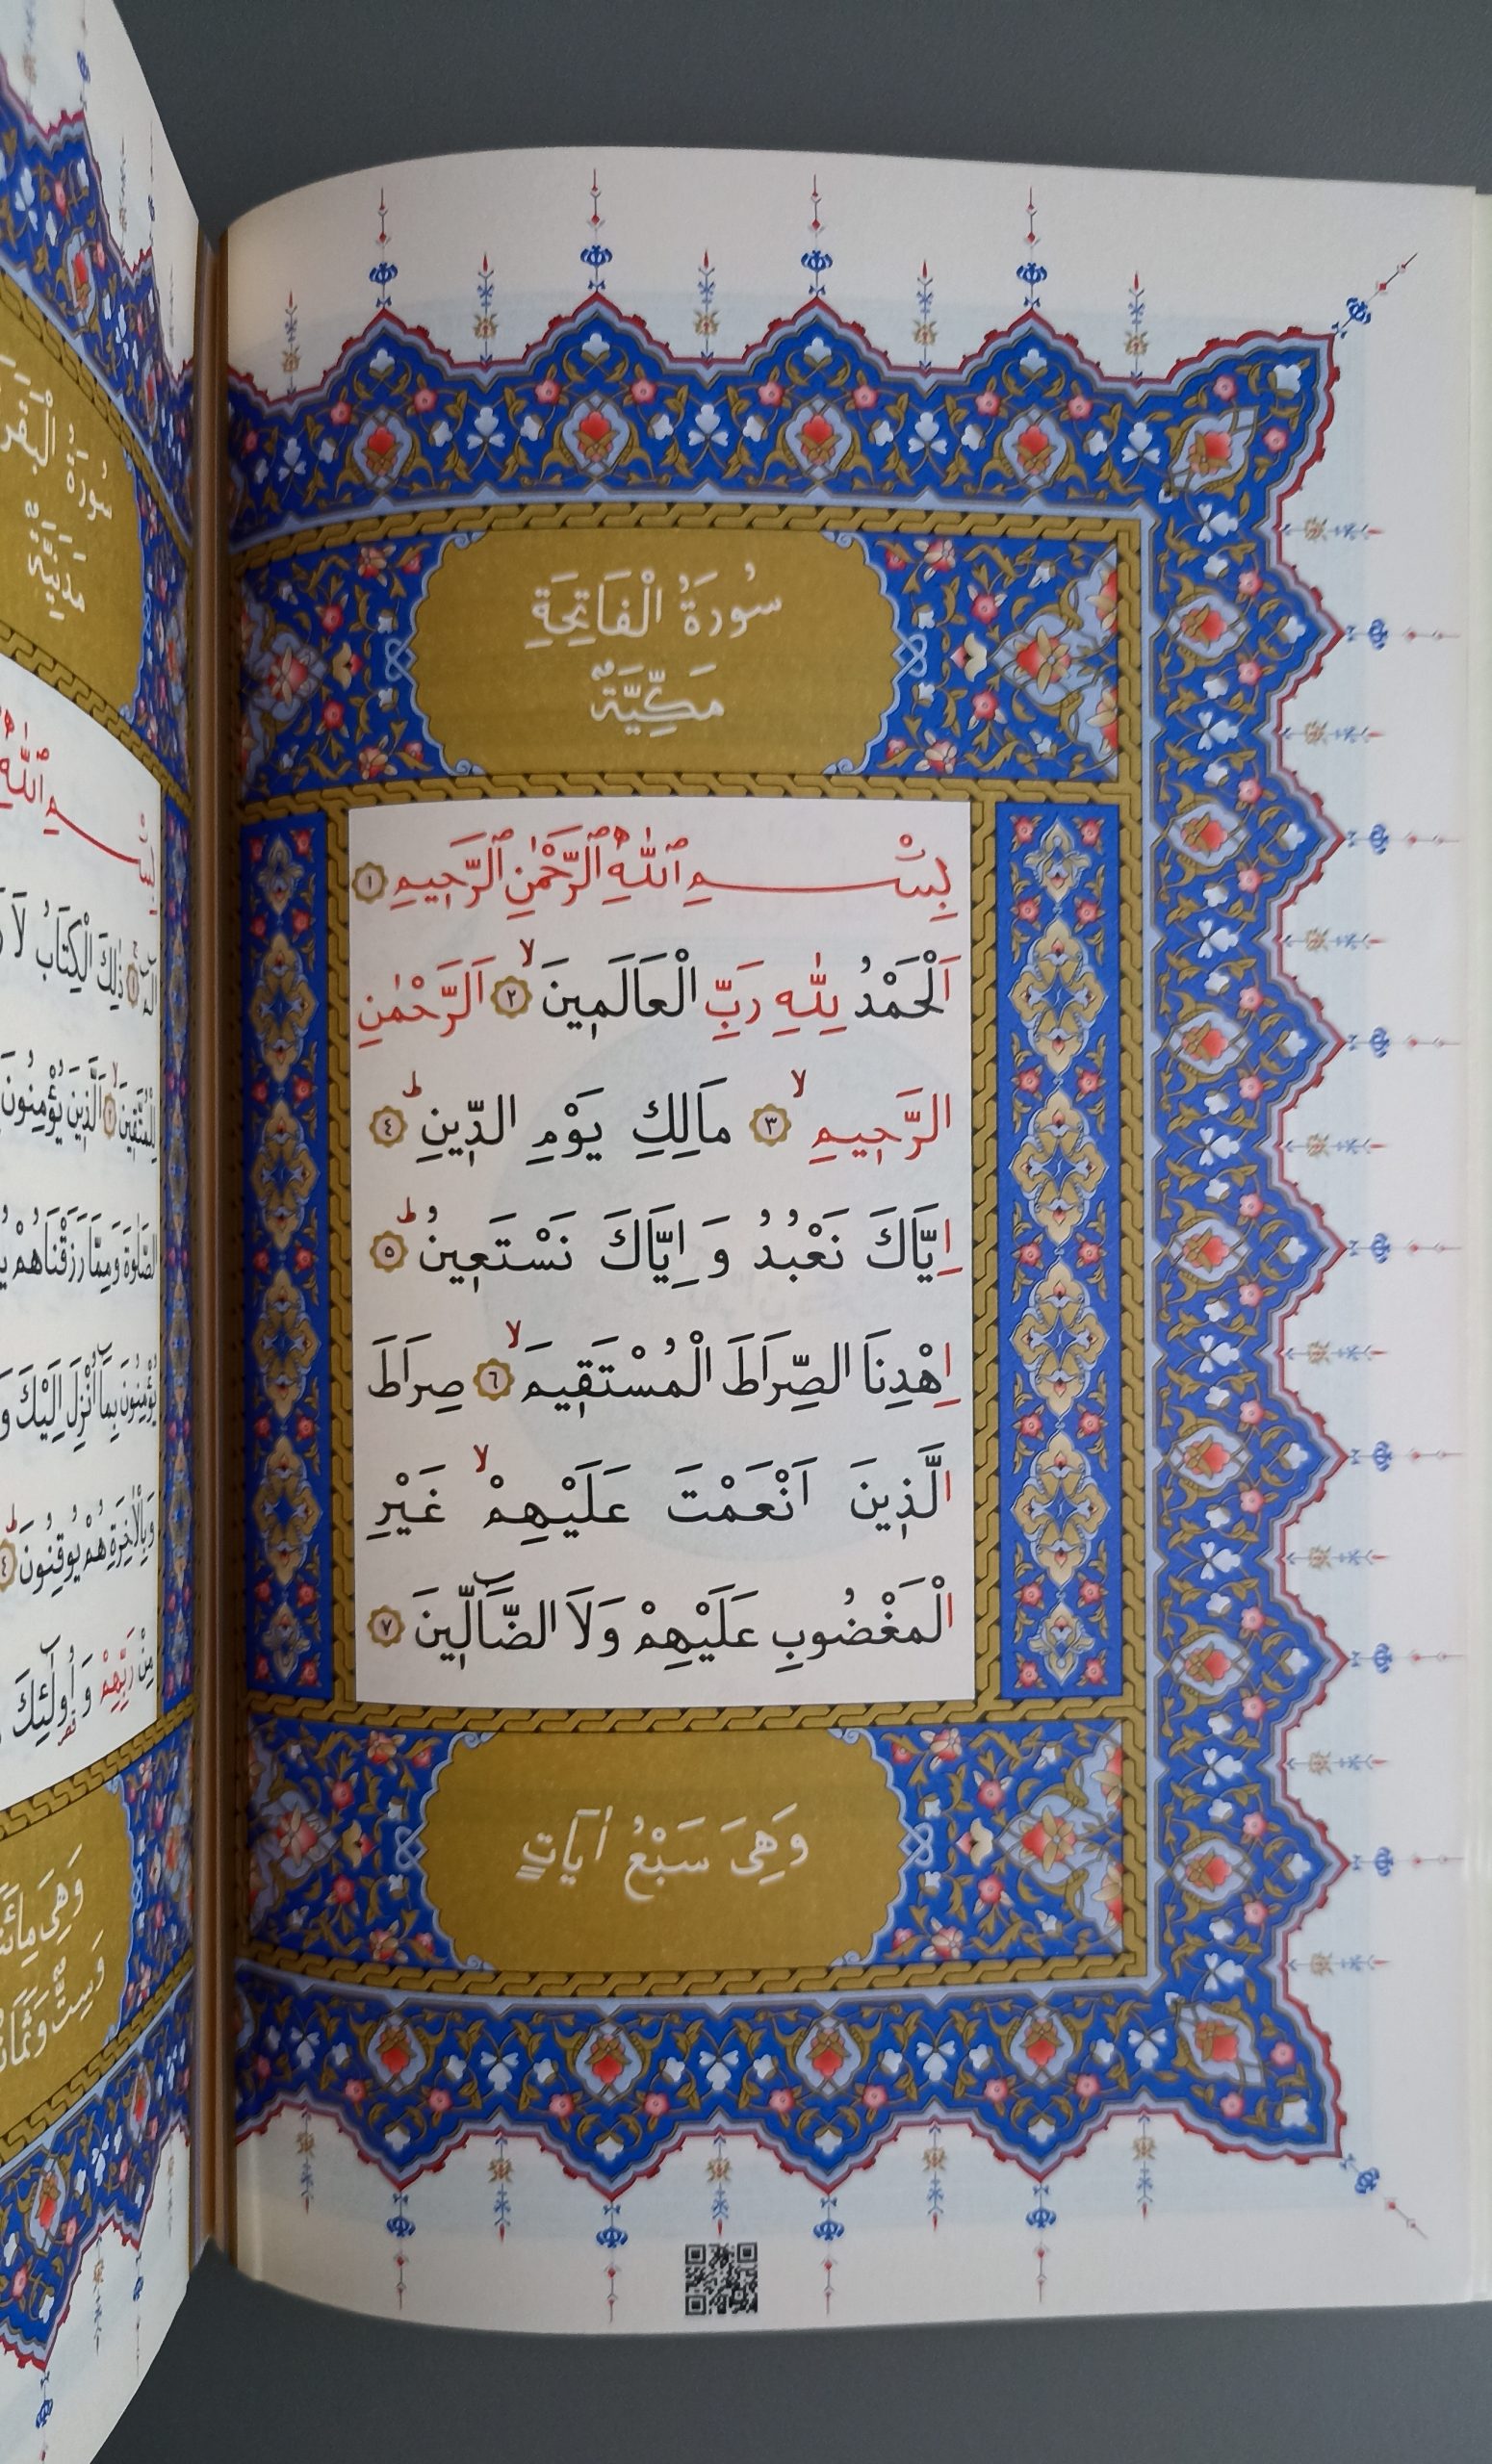 سُورَةُ الْفَاتِحَةِ
مَكِّيَّةٌ
بِسْمِ ٱللّٰهِ ٱلرَّحْمٰنِ ٱلرَّح۪يمِ ﴿١﴾
اَلْحَمْدُ لِلّٰهِ رَبِّ الْعَالَم۪ينَۙ ﴿٢﴾ اَلرَّحْمٰنِ
الرَّح۪يمِۙ ﴿٣﴾ مَالِكِ يَوْمِ الدّ۪ينِۜ ﴿٤﴾
اِيَّاكَ نَعْبُدُ وَ اِيَّاكَ نَسْتَع۪ينُۜ ﴿٥﴾
اِهْدِنَا الصِّرَاطَ الْمُسْتَق۪يمَۙ ﴿٦﴾ صِرَاطَ
الَّذ۪ينَ اَنْعَمْتَ عَلَيْهِمْۙ غَيْرِ
الْمَغْضُوبِ عَلَيْهِمْ وَلَا الضَّٓالّ۪ينَ ﴿٧﴾
وَهِىَ سَبْعُ اٰيَاتٍ
سُورَةُ
مَدَنِيَّةٌ
ذٰلِكَ الْكِتَابُ لَا
لِلْمُتَّق۪ينَۙ ﴿٢﴾ اَلَّذ۪ينَ يُؤْمِنُونَ
الصَّلٰوةَ وَمِمَّا رَزَقْنَاهُمْ
يُؤْمِنُونَ بِمَٓا اُنْزِلَ اِلَيْكَ
وَبِالْاٰخِرَةِ هُمْ يُوقِنُونَۜ ﴿٤﴾
مِنْ رَبِّهِمْ وَ اُو۬لٰٓئِكَ
وَهِىَ